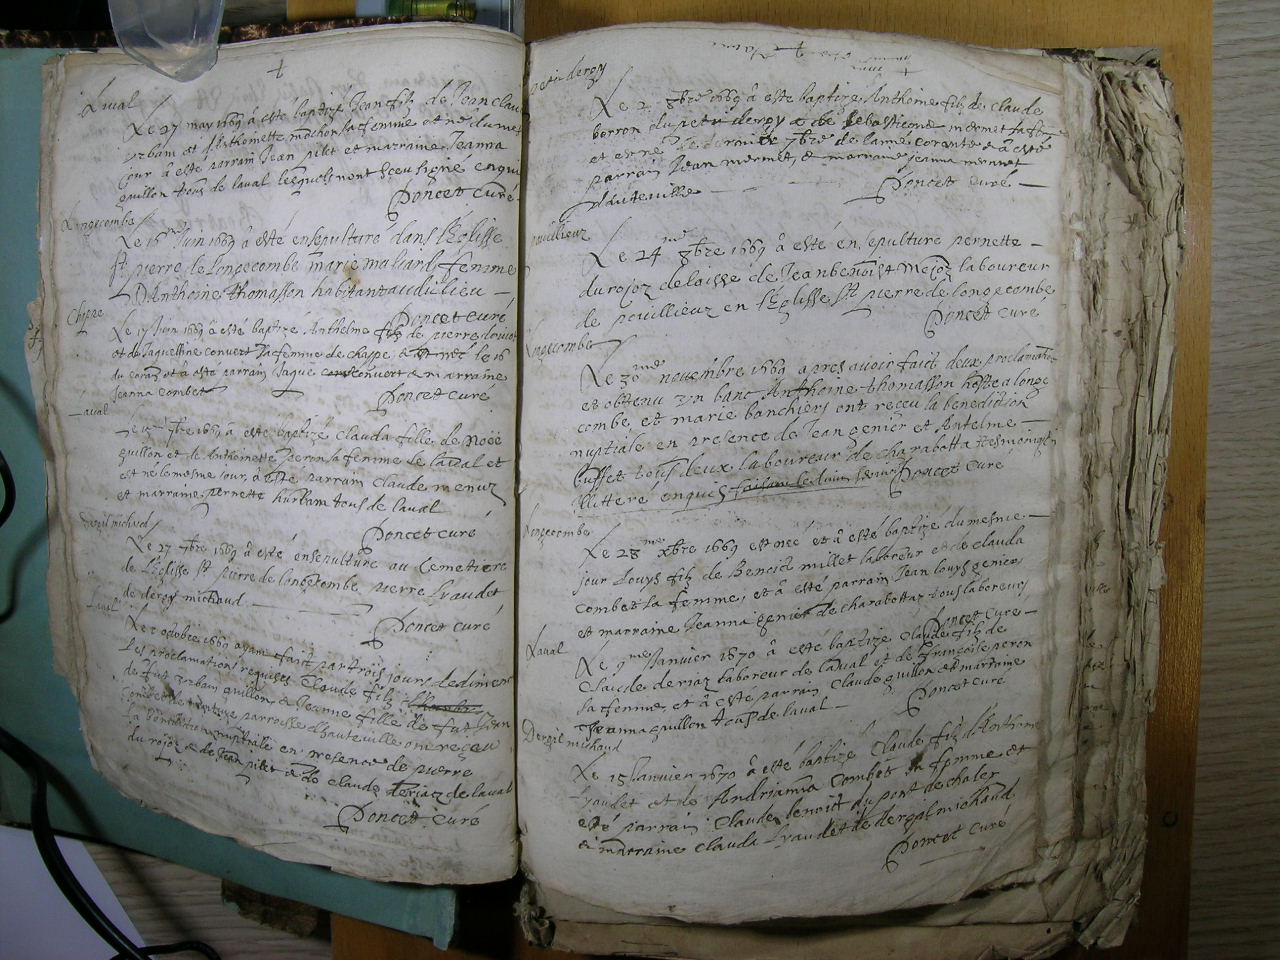 Laval
Le 27 may 1669 a esté baptizé Jean filz de Jean claude
urbam et Anthomette machon sa femme et né du mesme
jour a esté parrain Jean pilet et marraine Jeanna
guillon tous de laval lesquels nont sceu signé enquis
Poncet Curé
Longecombe
Le 16me Juin 1669 a esté ensepulturé dans l'Eglisse
St pierre de longecombe marie maliard femme
D'Anthoine thomasson habitant audit lieu
Poncet Curé
Le 17 Juin 1669 a esté baptizé Anthelme filz de pierre
et de Jaquelline convert sa femme de chappe et né le 16
du corant et a esté parrain Jaque convert et marraine
Jeanna Combet
Poncet Curé
Laval
1669 a esté baptizé Clauda fille de Noëe
guillon et de Anthomette peron sa femme de laval et
est né le mesme jour, a esté parrain Claude
et marraine pernette hurbam tous de laval
Poncet Curé
Dergil michaud
Le 27 7bre 1669 a esté ensepulturé au Cemetiere
de l'Eglisse St pierre de longecombe pierre Lyaudet
de dergil michaud
Poncet Curé
Laval
Le octobre 1669 ayant faict par trois jours de dimenche
les proclamations requises Claude filz
de fut urbam guillon, et Jeanne fille de fut Jean
Combet parroesse d'hauteville ont reçeu
la benediction nuptiale en presence de pierre
du rojoz et de Jean pilet et claude deriaz de laval
Poncet Curé
petit dergy
Le 2 8bre 1669 a esté baptizé Anthoine filz de Claude
berron du petit dergy et de sebastienne mermet sa feme
et est né le dernier 7bre de lanné corante et a esté
parrain Jean mermet, et marraine Jeanna mermet
d'hauteville
Poncet Curé
pouillieuz
Le 24me 8bre 1669 a esté ensepulturé pernette
du rojoz delaissé de Jean benoist laboureur
de pouillieuz en l'Eglisse St pierre de longecombe
Poncet Curé
Longecombe
Le 30me novembre 1669 apres avoir faict deux proclamations
et obtenu un banc Anthoine thomasson hoste a longe
combe, et marie banchiers ont reçeu la benediction
nuptiale en presence de Jean genier et Antelme
buffet tous deux laboureur de charabotta tesmoingts
illitere enquis
Poncet Curé
Longecombe
Le 28me xbre 1669 est neé et a esté baptizé du mesme
jour Louys filz de Benoict millet laboreur et de Clauda
Combet sa femme, et a esté parrain Jean louys genier
et marraine Jeanna genier de charabottaz tous laboreurs
Poncet Curé
Laval
Le 9me Janvier 1670 a esté baptizé Claude filz de
Claude deriaz laboreur de laval et de françoise peron
sa femme, et a esté parrain Claude guillon et marraine
Jeanna guillon tous de laval
Poncet Curé
Dergil michaud
Le 15 Janvier 1670 a esté baptizé Claude filz d'Anthoine
Lyaudet et de Andrianna Combet sa femme et
esté parrain Claude benoist du pont de chaley
et marraine Clauda Lyaudet de dergil michaud
Poncet Curé